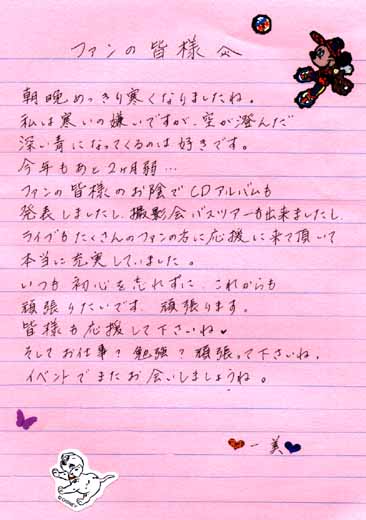 ファンの皆様へ
朝晩めっきり寒くなりましたね。
私は寒いの嫌いですが、空が澄んだ
深い青になってくるのは好きです。
今年もあと2ヶ月弱…
ファンの皆様のお陰でCDアルバムも
発表しましたし、撮影会バスツアーも出来ましたし、
ライブもたくさんのファンの方に応援に来て頂いて
本当に充実していました。
いつも初心を忘れずに、これからも
頑張りたいです。頑張ります。
皆様も応援して下さいね♥
そしてお仕事?勉強?頑張って下さいね。
イベントでまたお会いしましょうね。
♥一美♥